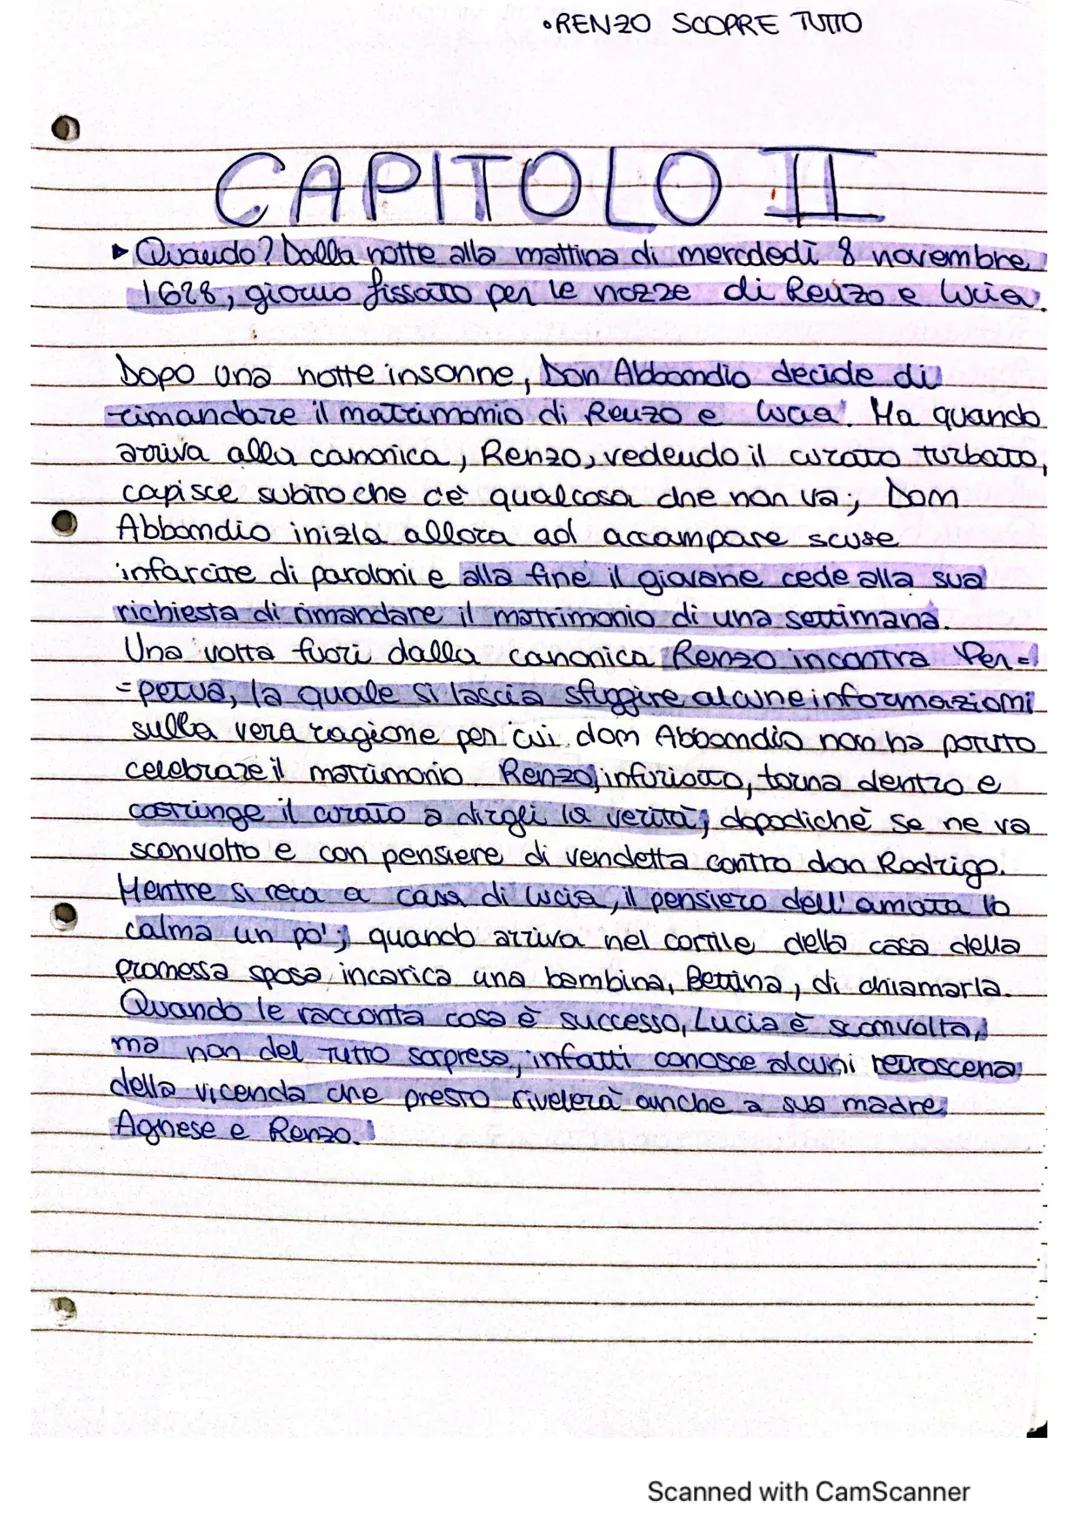 •RENZO SCOPRE TUTTO
CAPITOLO II
▸Quando? Dalla notte alla mattina di mercdedì 8 novembre
1628, giorno fissato per le nozze di Renzo e Lucia.
Dopo una notte insonne, Don Abbondio decide di
rimandare il matrimonio di Renzo e Lucia. Ma quando
arriva alla canonica, Renzo, vedendo il curato turbato,
capisce subito che c'è qualcosa che non va; Don
Abbondio inizia allora ad accampare scuse
infarcite di paroloni e alla fine il giovane cede alla sua
richiesta di rimandare il matrimonio di una settimana.
Una volta fuori dalla canonica Renzo incontra Per=
=petua, la quale si lascia sfuggire alcune informazioni
sulla vera ragione per cui don Abbondio non ha potuto
celebrare il matrimonio. Renzo, infuriato, torna dentro e
costringe il curato a dirgli la verità; dopodiché se ne va
sconvolto e con pensiere di vendetta contro don Rodrigo.
Mentre si reca a casa di Lucia, il pensiero dell'amata lo
calma un po'; quando arriva nel cortile della casa della
promessa sposa incarica una bambina, Bettina, di chiamarla.
Quando le racconta cosa è successo, Lucia è sconvolta,
ma non del tutto sorpresa, infatti conosce alcuni retroscena
della vicenda che presto rivelerà anche a sua madre
Agnese e Renzo.
Scanned with CamScanner